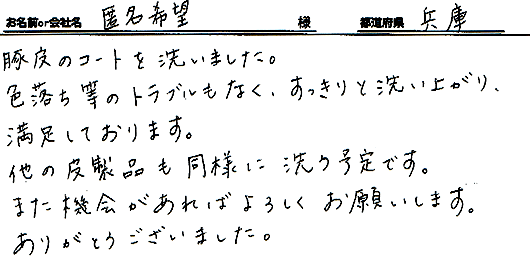 お名前or会社名 匿名希望 様 都道府県 兵庫
豚皮のコートを洗いました。
色落ち等のトラブルもなく、すっきりと洗い上がり、
満足しております。
他の皮製品も同様に洗う予定です。
また機会があればよろしくお願いします。
ありがとうございました。